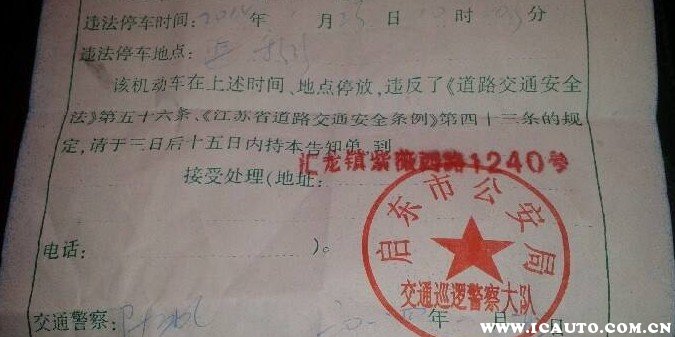 违法停车时间: 2014 年 月 25 日 时 分
违法停车地点:
该机动车在上述时间、地点停放,违反了《道路交通安全
法》第五十六条、《江苏省道路交通安全条例》第四十三条的规
定,请于三日后十五日内持本告知单,到
汇龙镇紫薇西路1240号
接受处理(地址:
启东市公安局
电话: )。
交通巡逻警察大队
交通警察: 年 日
爱卡汽车
WWW.ICAUTO.COM.CN